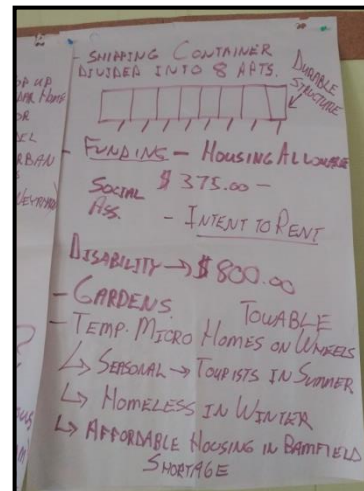 - SHIPPING CONTAINER
DIVIDED INTO 8 APTS.
DURABLE
STRUCTURE
- FUNDING - HOUSING ALLOWABLE
SOCIAL
ASS.
$375.00 -
- INTENT TO RENT
DISABILITY → $800.00
- GARDENS.
TOWABLE
- TEMP. MICRO HOMES ON WHEELS
↳ SEASONAL → TOURISTS IN SUMMER
↳ HOMELESS IN WINTER
↳ AFFORDABLE HOUSING IN BAMFIELD
SHORTAGE
UP
HOME
OR